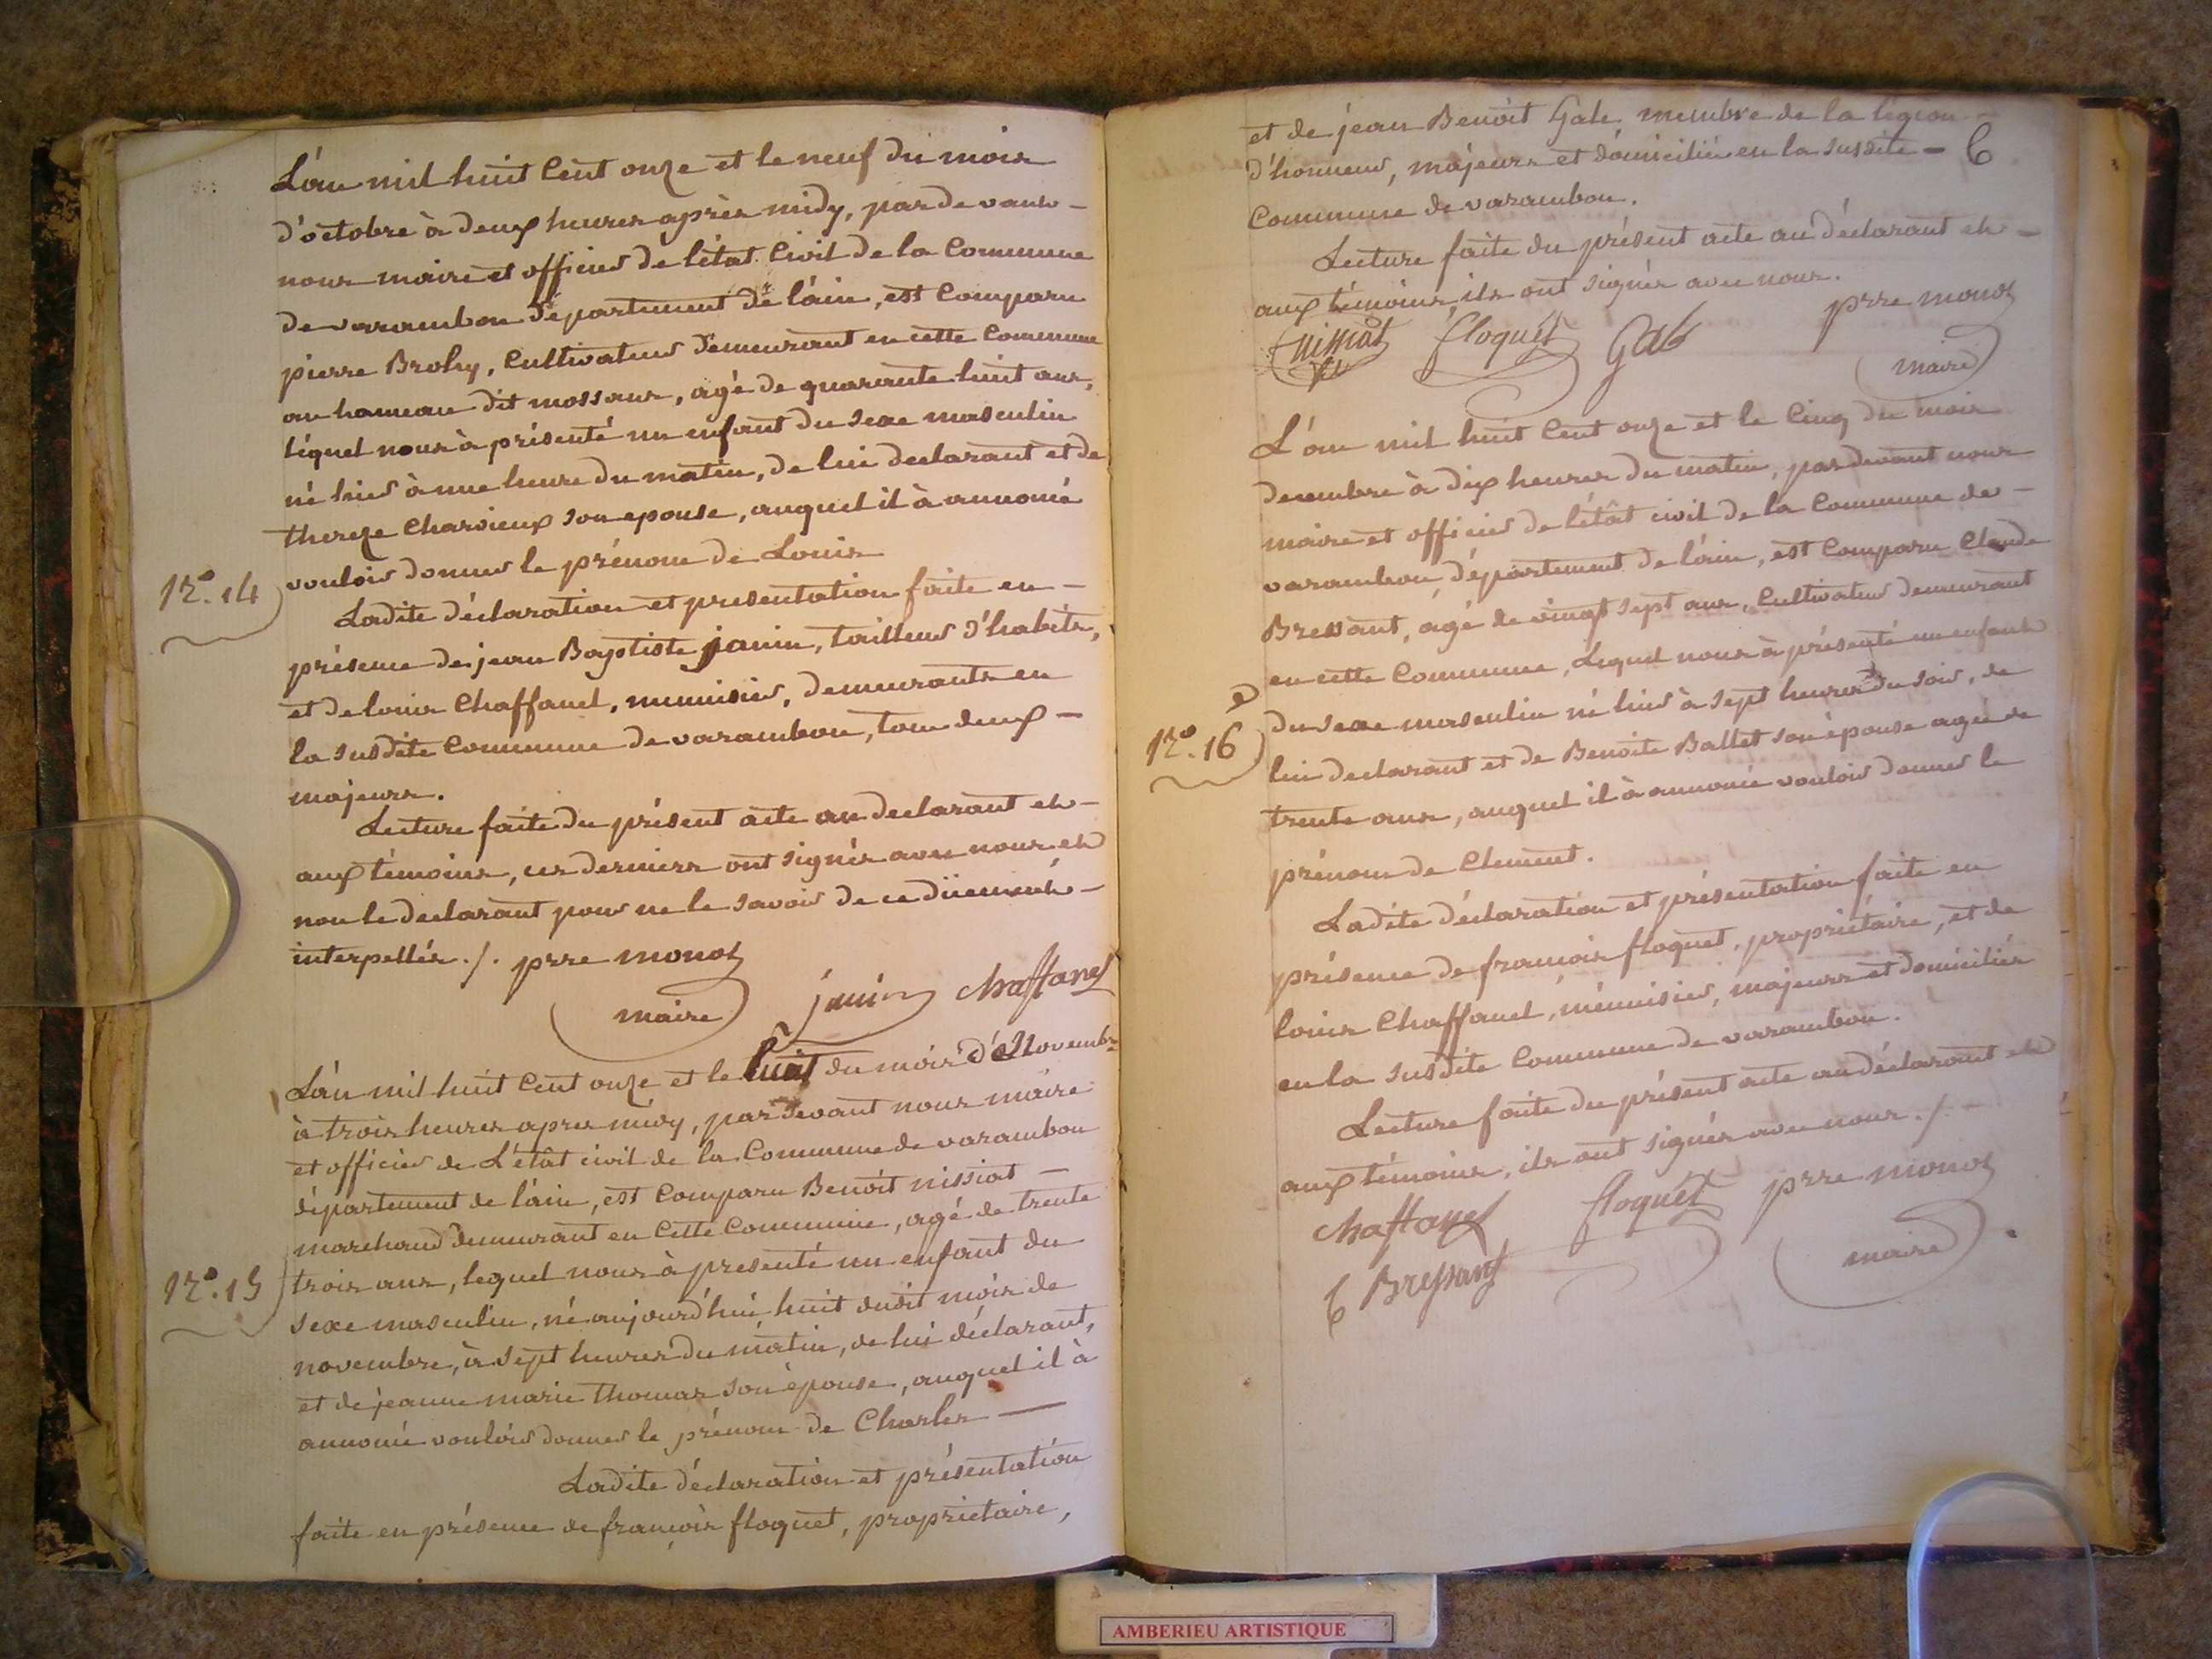 L'an mil huit Cent onze et le neuf du mois
d'octobre à deux heures après midy, par devant
nous maire et officier de l'état Civil de la Commune
de varambon département de l'ain, est Comparu
pierre Brohy, Cultivateur demeurant en cette Commune
au hameau dit mossans, agé de quarante huit ans,
léquel nous à présenté un enfant du sexe masculin
né hier à une heure du matin, de lui declarant et de
thereze Charvieux son epouse, auquel il à annoncé
vouloir donner le prénom de Louis
N°. 14
Ladite déclaration et presentation faite en
présence de jean Baptiste janin, tailleur d'habits,
et de louis Chaffanel, menuisier, demeurants en
la susdite Commune de varambon, tous deux
majeurs.
Lecture faite du présent acte au declarant et
aux témoins, ces derniers ont signés avec nous et
non le declarant pour ne le savoir de ce düement
interpellés ./. prre monot
maire janin chaffanel
L'an mil huit Cent onze et le huit du mois de Novembre
à trois heures apres midy, pardevant nous maire
et officier de L'êtât civil de la Commune de varambon
département de l'ain, est Comparu Benoit nissiat
marchand demeurant en Cette Commune, agé de trente
N°. 15
trois ans, lequel nous à presenté un enfant du
sexe masculin, né aujourd'hui huit dudit mois de
novembre, à sept heures du matin, de lui déclarant,
et de jeanne marie thomas son épouse, auquel il à
annoncé vouloir donner le prénom de Charles
Ladite déclaration et présentation
faite en présence de françois floquet, proprietaire,
et de jean Benoit Gale membre de la légion
d'honneur, majeurs et domiciliés en la susdite 6
Commune de varambon.
Lecture faite du présent acte au déclarant et
aux témoins, ils ont signés avec nous.
nissiat floquet Gale prre monot
maire
L'an mil huit Cent onze et le Cinq du mois
decembre à dix heures du matin, pardevant nous
maire et officier de l'êtât civil de la Commune de
varambon, département de l'ain, est Comparu Claude
Bressant, agé de vingt sept ans, Cultivateur demeurant
en cette Commune, Lequel nous à présenté un enfant
du sexe masculin né hier à sept heures du soir, de
N°. 16
lui declarant et de Benoite Ballet son épouse agée de
trente ans, auquel il à annoncé vouloir donner le
prénom de Clement.
Ladite déclaration et présentation faite en
présence de françois floquet, propriétaire, et de
louis Chaffanel, ménuisier, majeurs et domiciliés
en la susdite Commune de varambon.
Lecture faite du présent acte au déclarant et
aux témoins, ils ont signés avec nous ./.
chaffanel floquet prre monot
C Bressant maire
AMBERIEU ARTISTIQUE